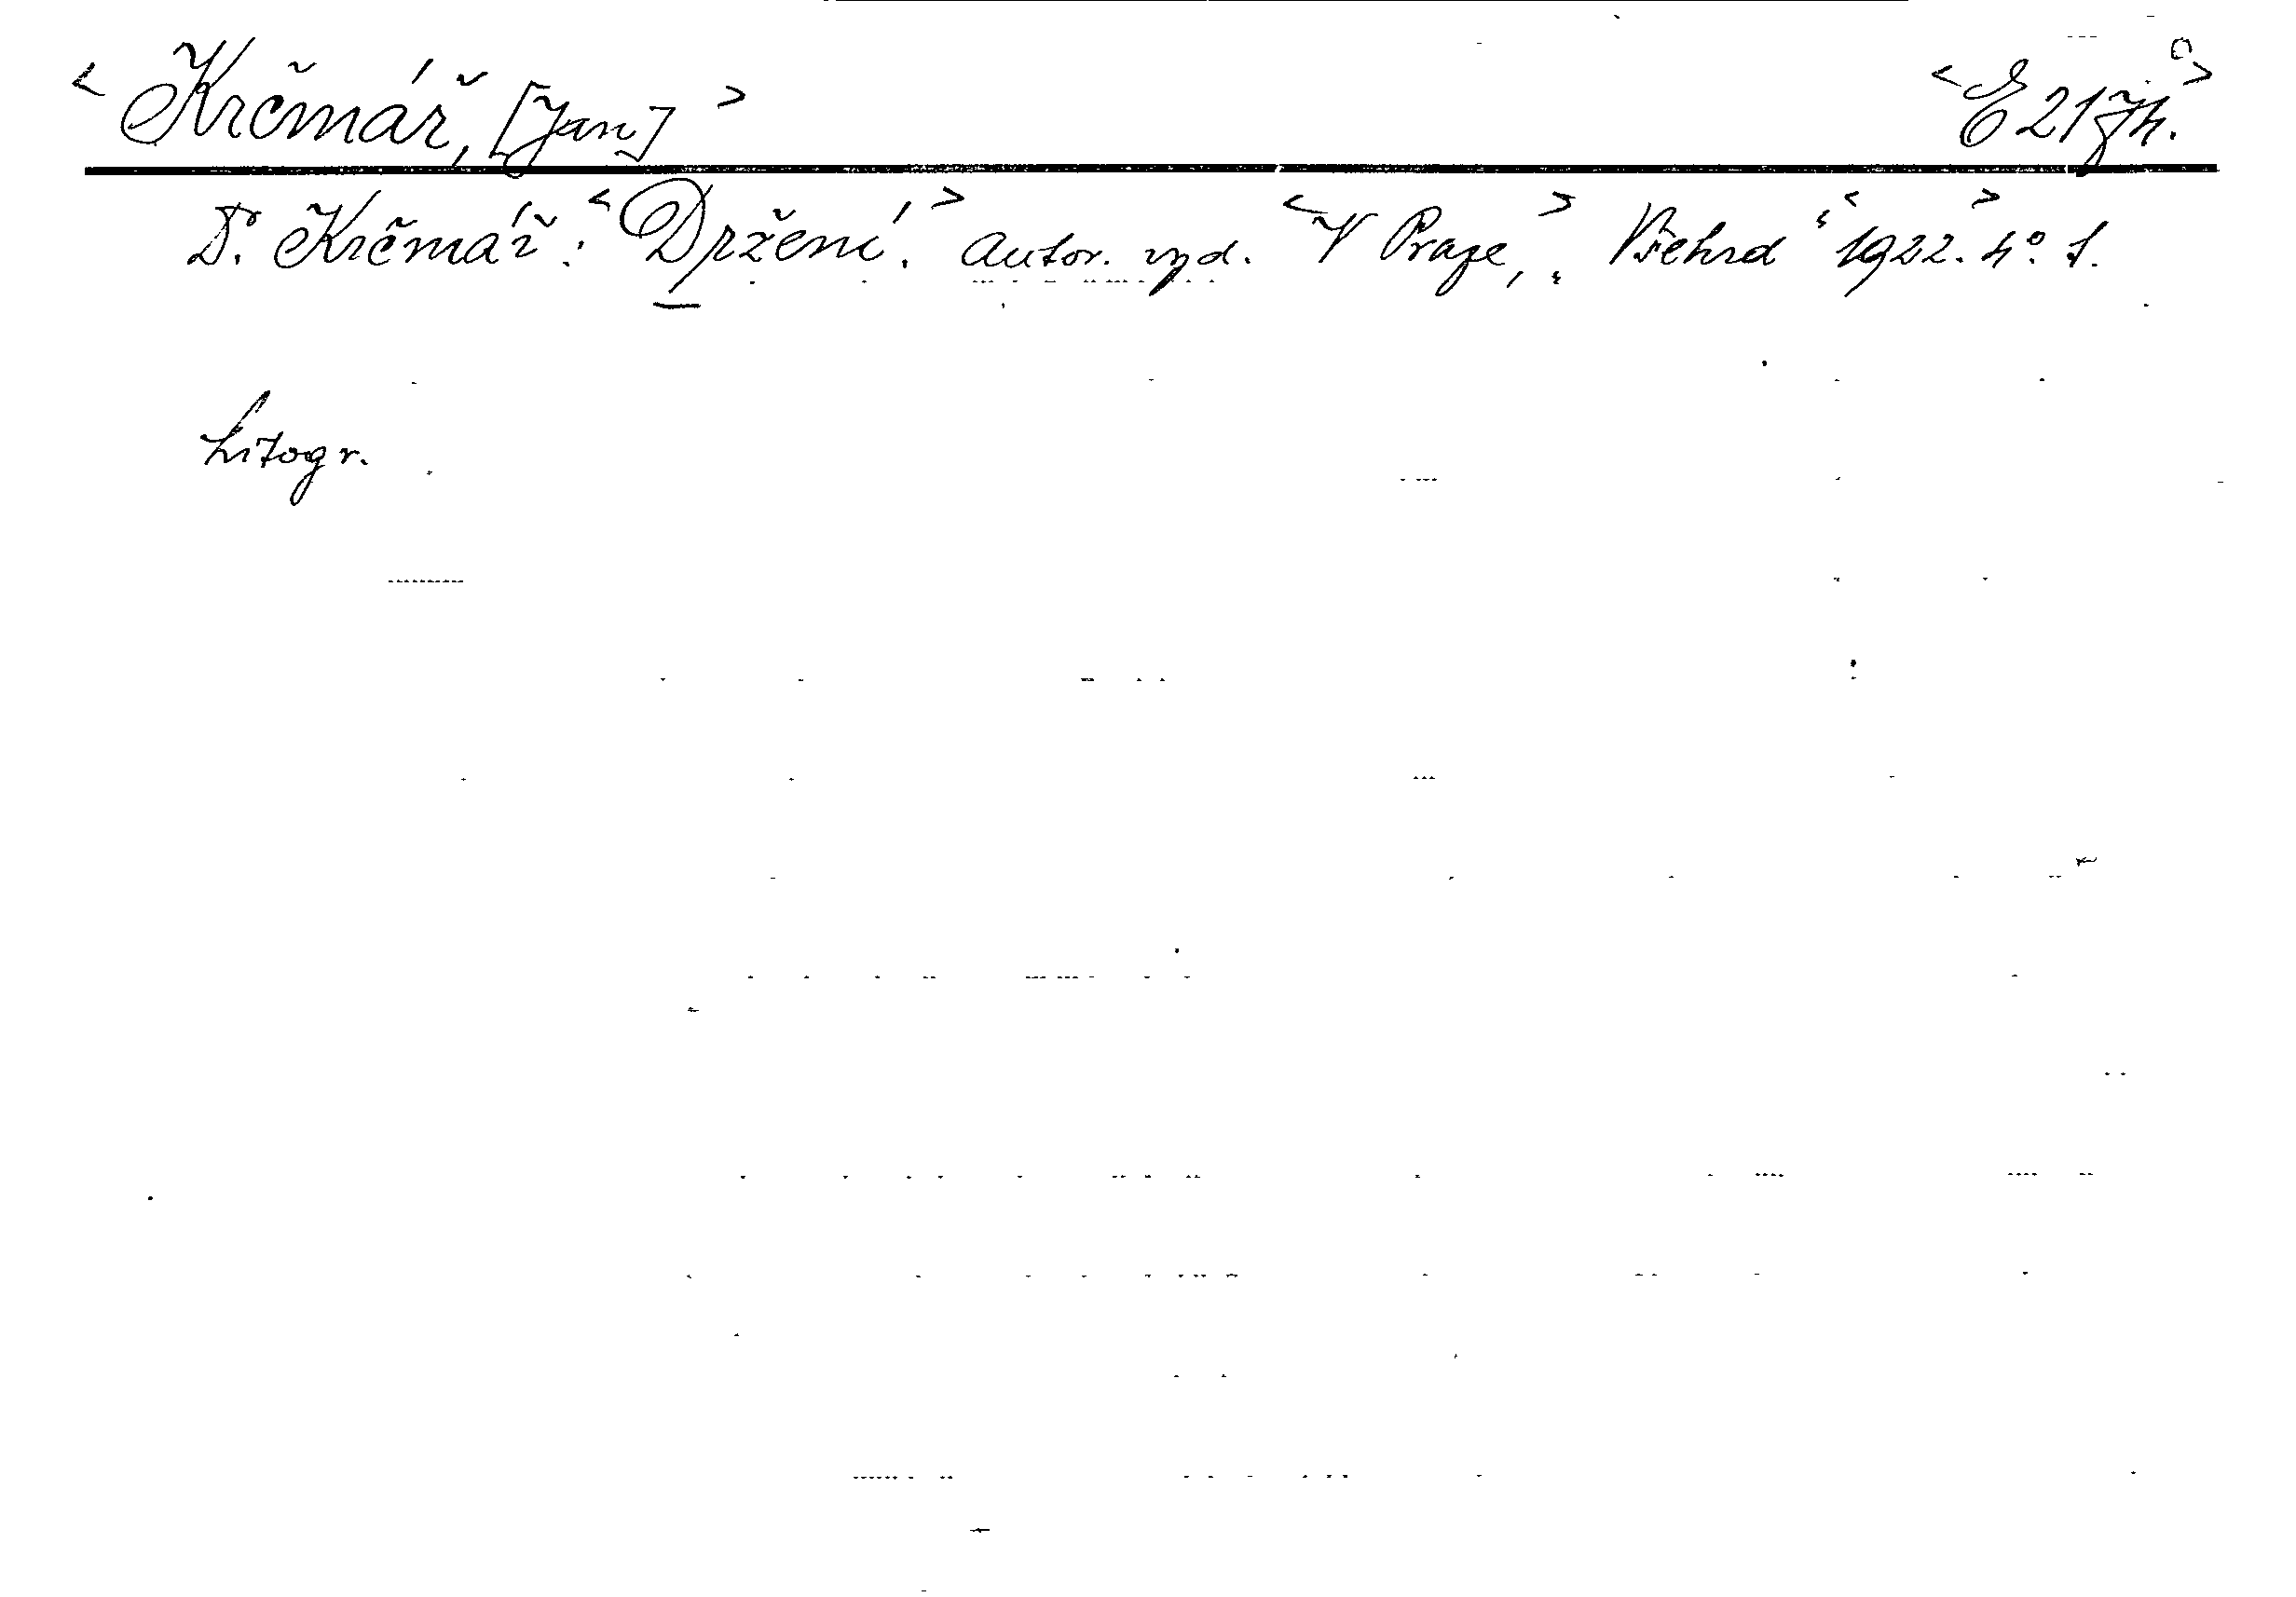 <Krčmář, [Jan]> <E 21zh.>
Dr. Krčmář: <Držení.> Autor. vyd. <V Praze,> „Všehrd“ <1922.> 4°. 1.
Litogr.